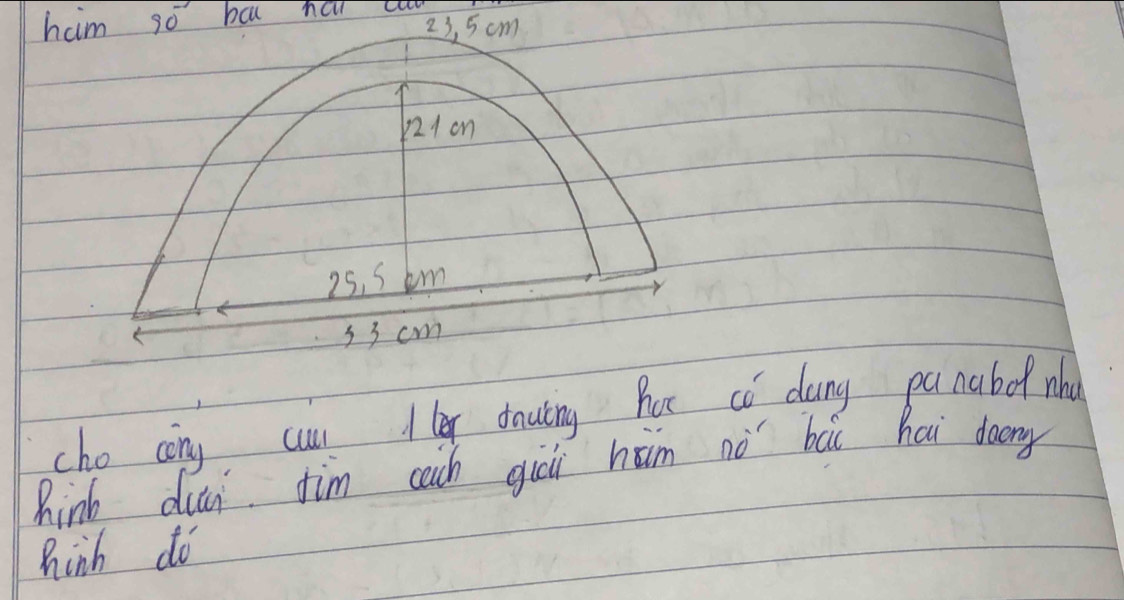 hàm số bậc hai
23,5 cm
21 cm
25,5 cm
33 cm
cho cổng của 1 trường học có dạng parabol như
hình dưới. tìm cách giải hàm số bậc hai dạng
hình đó